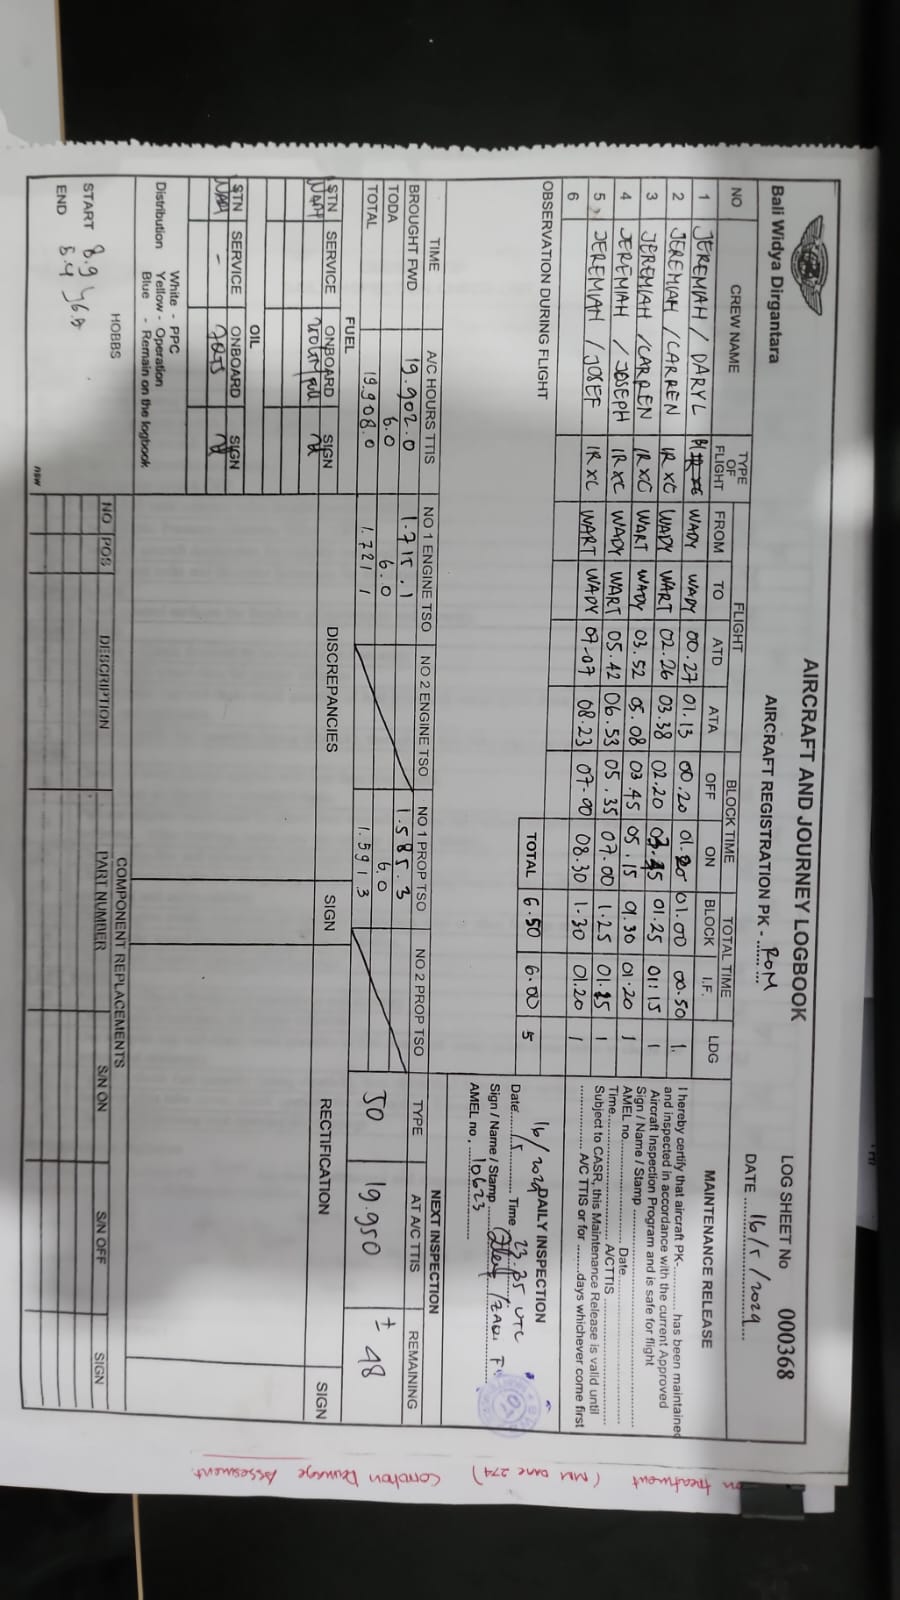 AIRCRAFT AND JOURNEY LOGBOOK
AIRCRAFT REGISTRATION PK - ROM
Bali Widya Dirgantara
LOG SHEET No 000368
DATE 16/5/2024
NO CREW NAME TYPE OF FLIGHT FLIGHT BLOCK TIME TOTAL TIME LDG
FROM TO ATD ATA OFF ON BLOCK I.F.
1 JEREMIAH / DARYL WADY WADY 00.27 01.13 00.20 01.20 01.00 00.50 1
2 JEREMIAH / CARREN IR XC WADY WART 02.26 03.38 02.20 03.45 01.25 01.15 1
3 JEREMIAH / CARREN IR XC WART WADY 03.52 05.08 03.45 05.15 01.30 01.20 1
4 JEREMIAH / JOSEPH IR XC WADY WART 05.42 06.53 05.35 07.00 1.25 01.15 1
5 JEREMIAH / JOSEF IR XC WART WADY 07.07 08.23 07.00 08.30 1.30 01.20 1
6
TOTAL 6.50 6.00 5
OBSERVATION DURING FLIGHT
MAINTENANCE RELEASE
I hereby certify that aircraft PK- has been maintained
and inspected in accordance with the current Approved
Aircraft Inspection Program and is safe for flight
Sign / Name / Stamp
AMEL no. Date
Time A/CTTIS
Subject to CASR, this Maintenance Release is valid until
A/C TTIS or for days whichever come first
DAILY INSPECTION
16/2024
Date 15 Time 23.35 UTC
Sign / Name / Stamp
AMEL no. 10623
TIME A/C HOURS TTIS NO 1 ENGINE TSO NO 2 ENGINE TSO NO 1 PROP TSO NO 2 PROP TSO
BROUGHT FWD 19.902.0 1.715.1 1.585.3
TODA 6.0 6.0 6.0
TOTAL 19.908.0 1.721.1 1.591.3
NEXT INSPECTION
TYPE AT A/C TTIS REMAINING
50 19.950 ± 48
FUEL
STN SERVICE ONBOARD SIGN
OIL
STN SERVICE ONBOARD SIGN
-
DISCREPANCIES SIGN RECTIFICATION SIGN
Distribution White - PPC
Yellow - Operation
Blue - Remain on the logbook
HOBBS
START 8.9
END
COMPONENT REPLACEMENTS
NO POS DESCRIPTION PART NUMBER S/N ON S/N OFF SIGN
nsw
on treatment (MM page 274) Corrotion Damage Assesment